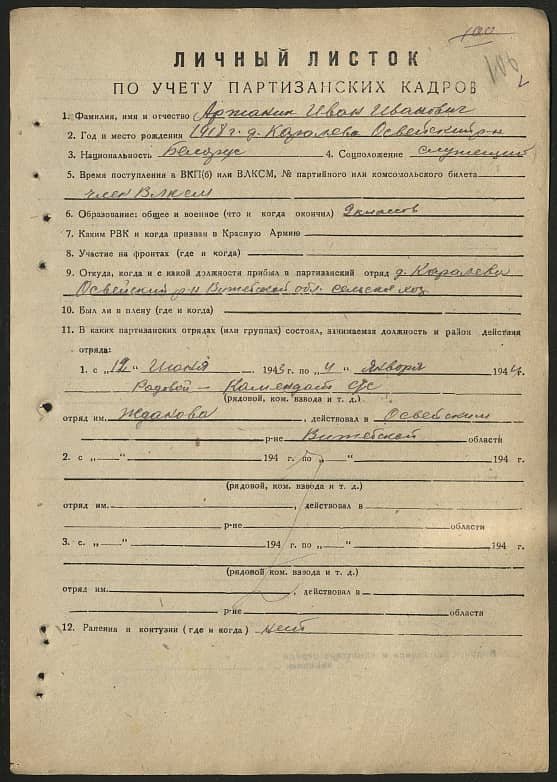 100
106
ЛИЧНЫЙ ЛИСТОК
ПО УЧЕТУ ПАРТИЗАНСКИХ КАДРОВ
1. Фамилия, имя и отчество Аржанин Иван Иванович
2. Год и место рождения 1918 г. д. Каралева Освейский р-н
3. Национальность Белорус 4. Соцположение служещий
5. Время поступления в ВКП(б) или ВЛКСМ, № партийного или комсомольского билета
член ВЛКСМ
6. Образование: общее и военное (что и когда окончил) 9 классов
7. Каким РВК и когда призван в Красную Армию
8. Участие на фронтах (где и когда)
9. Откуда, когда и с какой должности прибыл в партизанский отряд д. Каралева
Освейский р-н Витебской обл. сельское хоз.
10. Был ли в плену (где и когда)
11. В каких партизанских отрядах (или группах) состоял, занимаемая должность и район действия
отряда:
1. с „12“ Июня 1943 г. по „4“ Января 1944 г.
Радовой — Камендаст
(рядовой, ком. взвода и т. д.)
отряд им. Жданова, действовал в Освейским
р-не Витебской области
2. с „—“ 194 г. по „—“ 194 г.
(рядовой, ком. взвода и т. д.)
отряд им. , действовал в
р-не области
3. с „—“ 194 г. по „—“ 194 г.
(рядовой, ком. взвода и т. д.)
отряд им. , действовал в
р-не области
12. Ранения и контузии (где и когда) нет